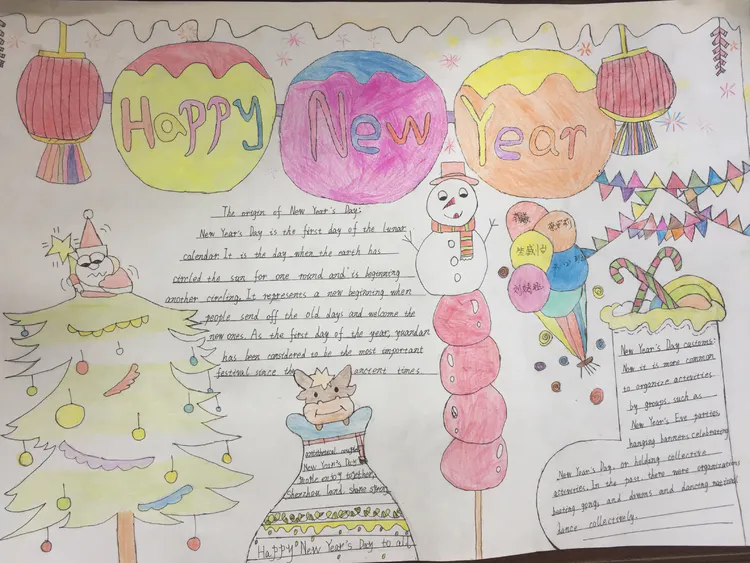 Happy New Year
The orogen of New Year's Day:
New Year's Day is the first day of the lunar
calendar. It is the day when the earth has
circled the sun for one round and is beginning
another circling. It represents a new beginning when
people send off the old days and welcome the
new ones. As the first day of the year, yuandan
has been considered to be the most important
festival since the ancient times.
New Year's Day customs:
Now it is more common
to organize activities
by groups, such as
New Year's Eve parties
hanging banners celebrating
New Year's Day. or holding collective
activities. In the past there more organizations
beating gongs and drums and dancing national
dance collectively.
New Year's Day
people enjoy together,
Shenzhou land, share spring
Happy New Year's Day to all